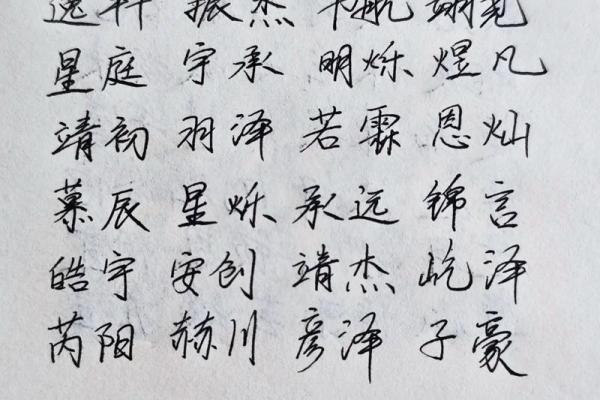 逸轩 振杰 翊尧
星庭 宇承 明烁 煜凡
靖初 羽泽 若霖 恩灿
慕辰 星烁 承远 锦言
皓宇 安创 靖杰 屹泽
芮阳 赫川 彦泽 子豪